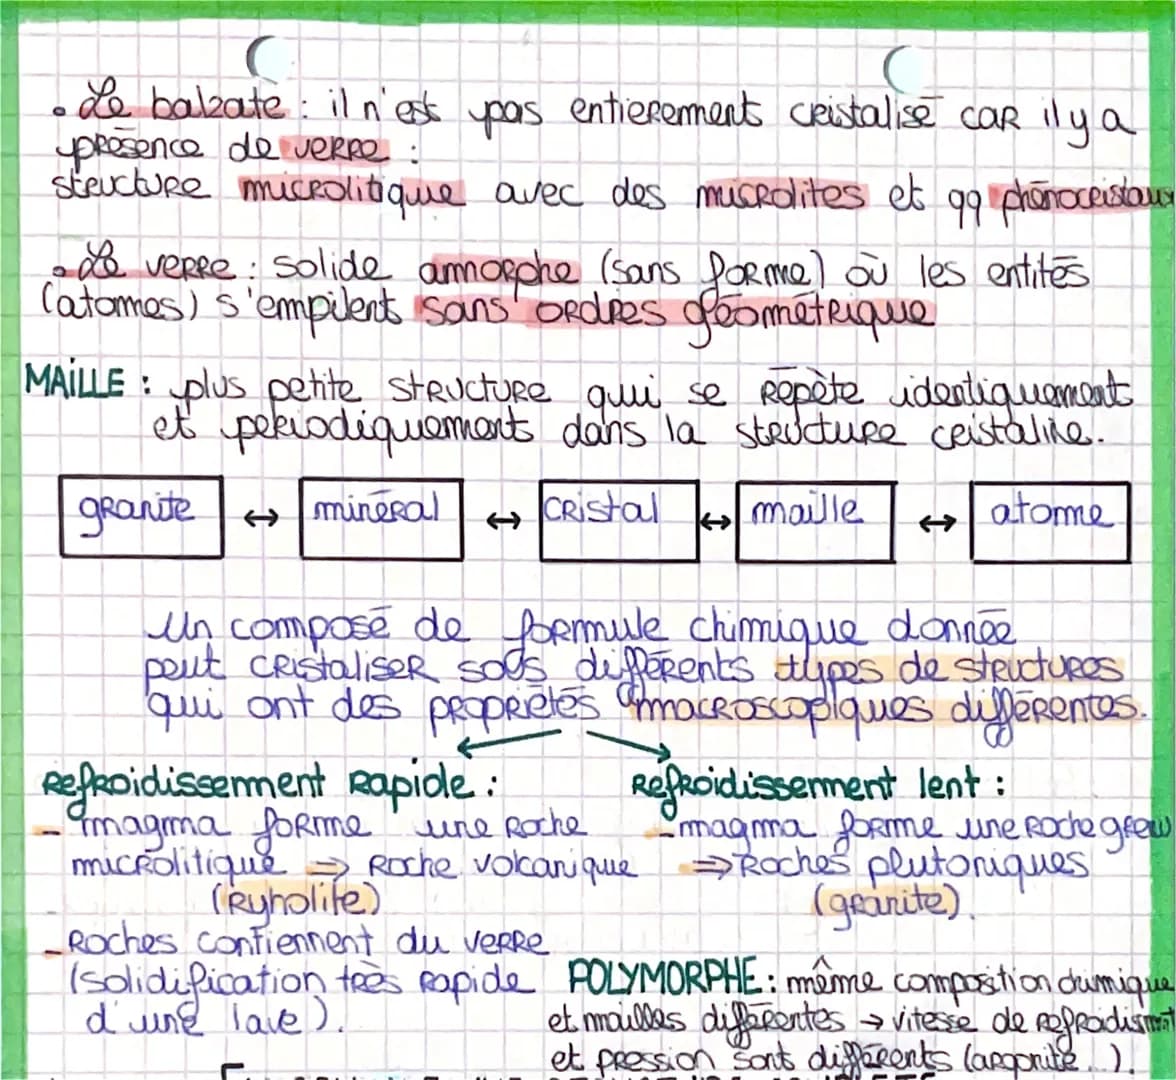 • Le balzate : il n'est pas entierement cristalisé car il y a
présence de verre :
structure microlitique avec des microlites et qq phénocristaux
• Le verre : solide amorphe (sans forme) où les entités
(atomes) s'empilent sans ordres géométrique
MAILLE : plus petite structure qui se repète identiquement
et periodiquement dans la structure cristaline.
granite ↔ minéral ↔ cristal ↔ maille ↔ atome
Un composé de formule chimique donnée
peut cristaliser sous différents types de structures
qui ont des propriétés macroscopiques différentes.
Refroidissement rapide :
- magma forme une roche
microlitique ⇒ Roche volcanique
(Ryholite)
- Roches contiennent du verre
(solidification très rapide
d'une lave).
Refroidissement lent :
- magma forme une roche
⇒ Roches plutoniques
(granite).
POLYMORPHE : même composition chimique
et mailles différentes → vitesse de
et pression sont différents (argonite...).